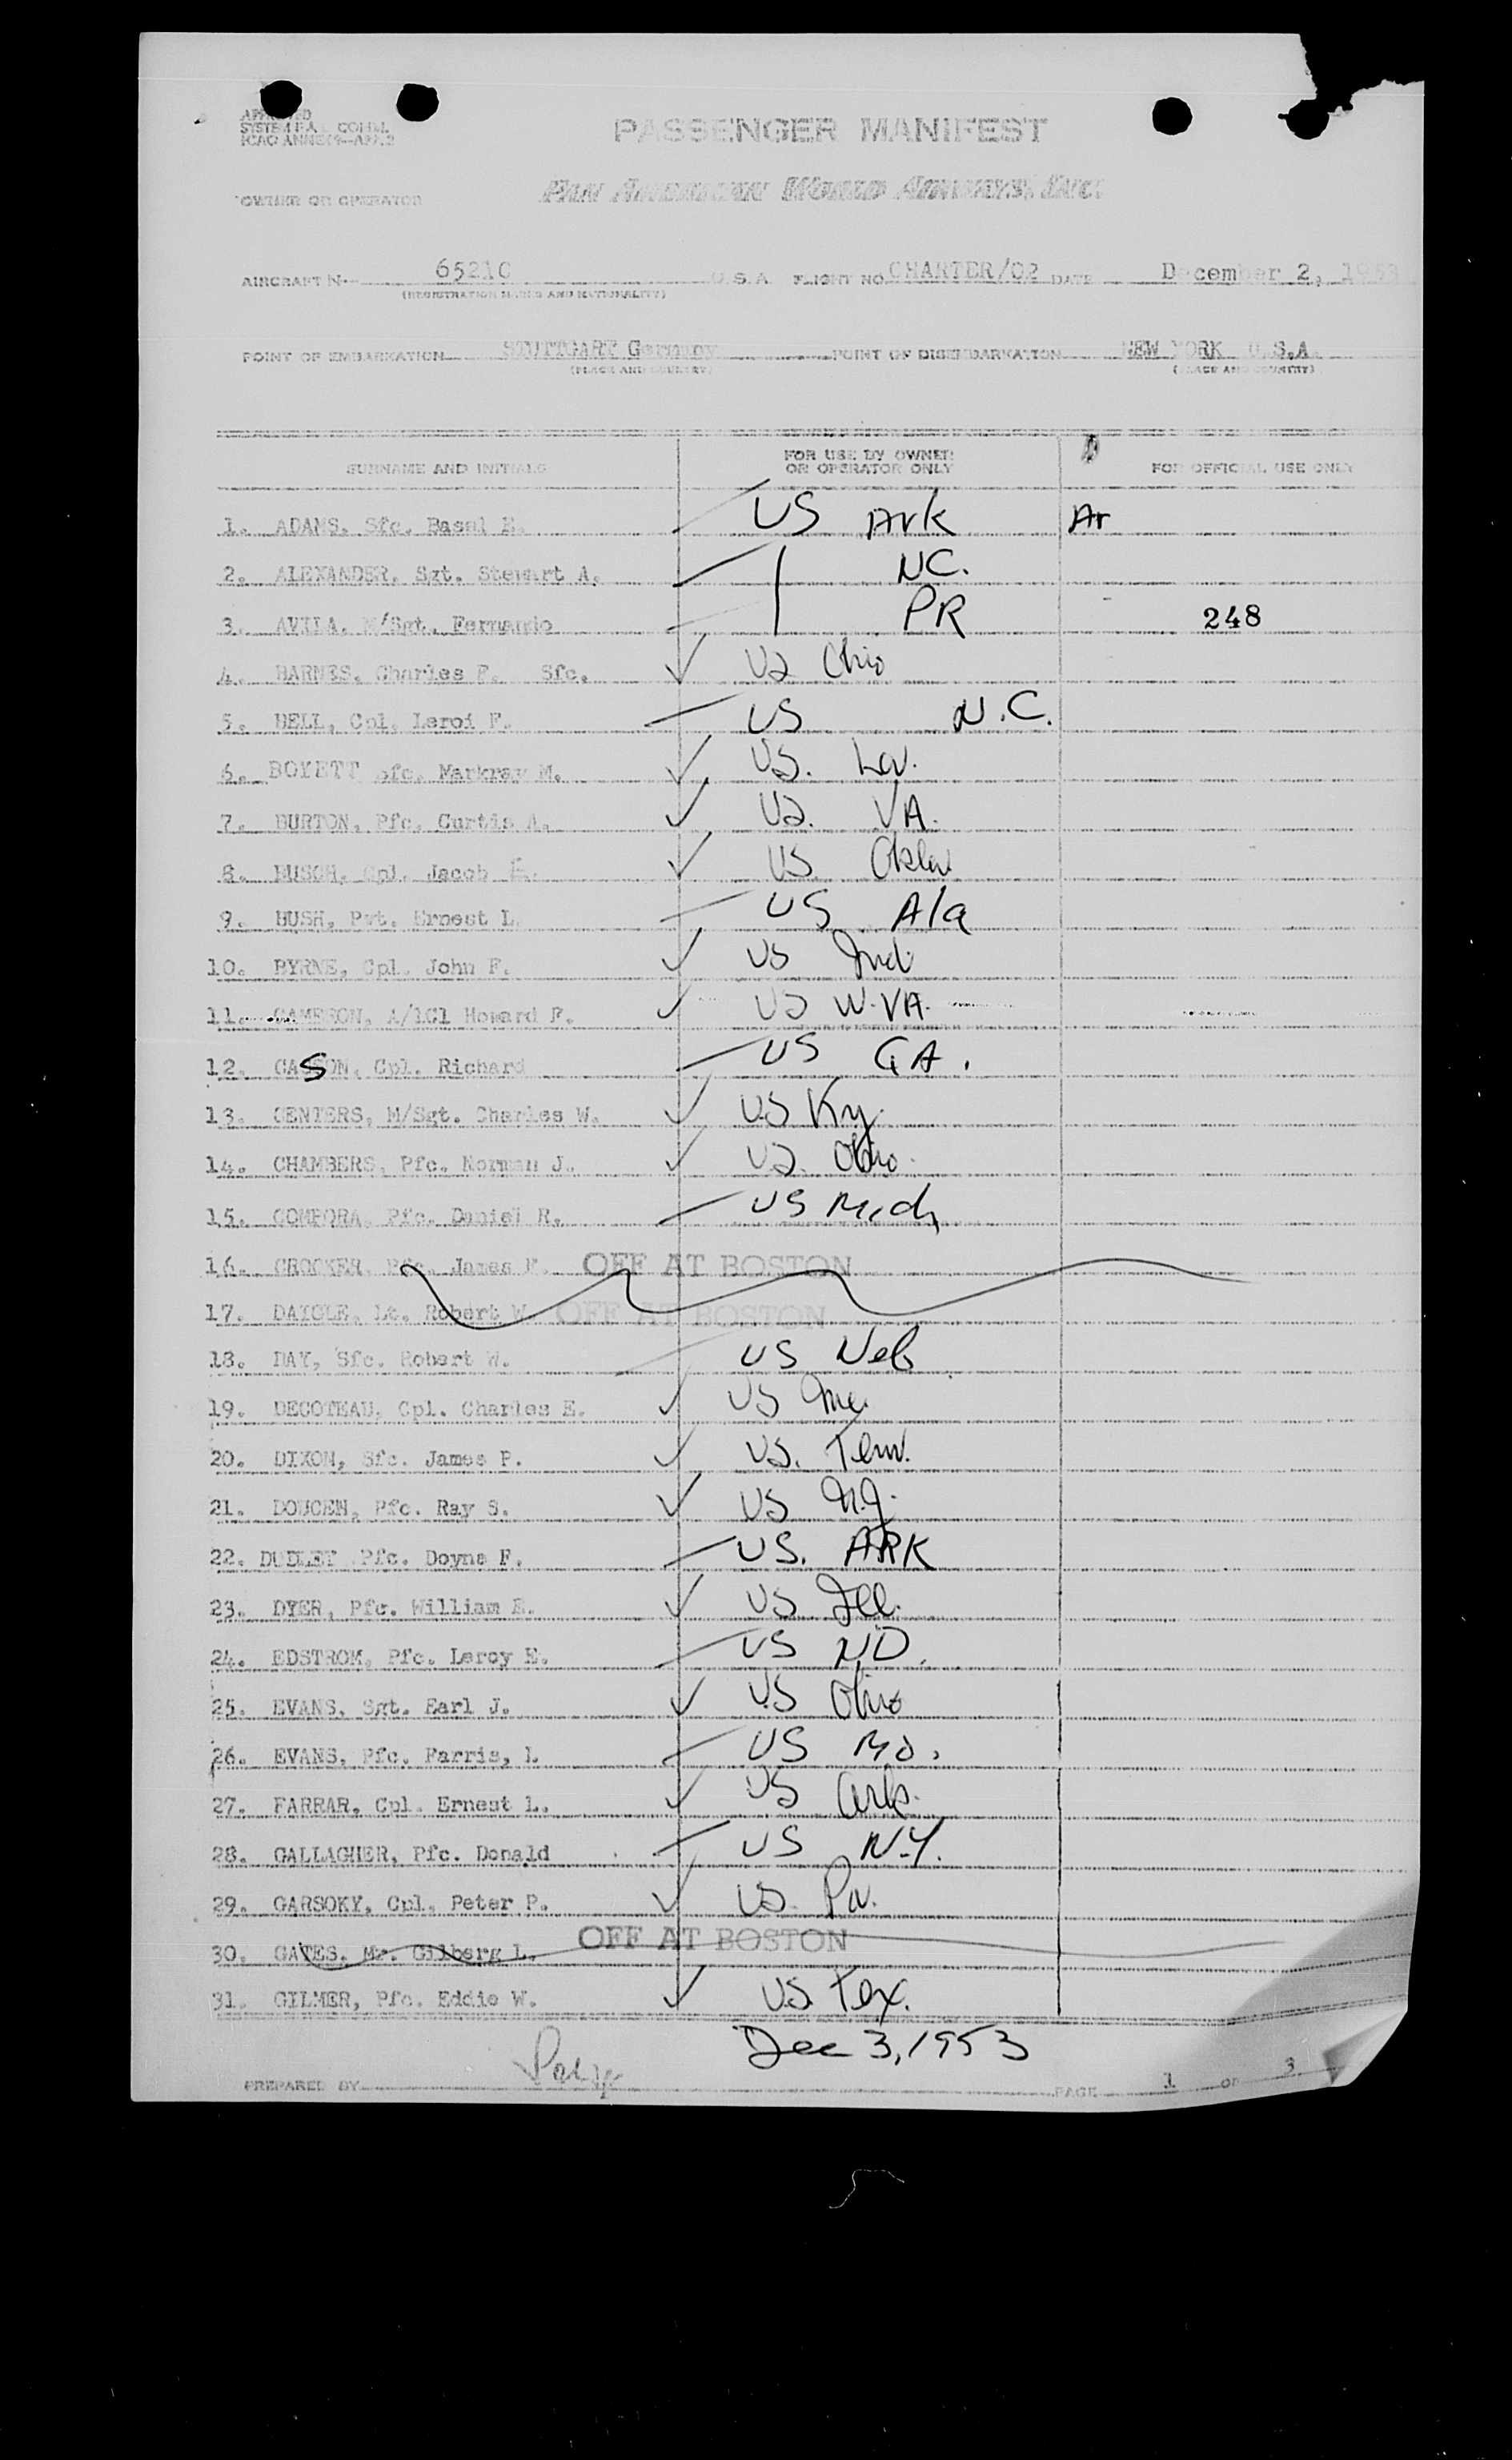 APPROVED
SYSTEM F.A. COM'ML
ICAO ANNEX 9—APP. 2
PASSENGER MANIFEST
OWNER OR OPERATOR PAN AMERICAN WORLD AIRWAYS, INC.
AIRCRAFT N 65210 U.S.A. FLIGHT NO. CHARTER/02 DATE December 2, 1953
(REGISTRATION MARKS AND NATIONALITY)
POINT OF EMBARKATION STUTTGART Germany POINT OF DISEMBARKATION NEW YORK U.S.A.
(PLACE AND COUNTRY) (PLACE AND COUNTRY)
SURNAME AND INITIALS FOR USE BY OWNER OR OPERATOR ONLY FOR OFFICIAL USE ONLY
1. ADAMS, Sfc. Basel E. US Ark Ar
2. ALEXANDER, Sgt. Stewart A. NC.
3. AVILA, M/Sgt. Fernando PR 248
4. BARNES, Charles F. Sfc. US Ohio
5. BELL, Cpl. Leroi F. US N.C.
6. BOYETT Sfc. Markray M. US. La.
7. BURTON, Pfc. Curtis A. US. VA.
8. BUSCH, Cpl. Jacob E. US Okla
9. BUSH, Pvt. Ernest L. US Ala
10. BYRNE, Cpl. John F. US Ind
11. CAMERON, A/1Cl Howard F. US W.VA.
12. CASSON, Cpl. Richard US GA.
13. CENTERS, M/Sgt. Charles W. US Ky.
14. CHAMBERS, Pfc. Norman J. US. Ohio.
15. COMPORA, Pfc. Daniel R. US Mich
16. CROCKER, Pfc. James F. OFF AT BOSTON
17. DAIGLE, Lt. Robert W. OFF AT BOSTON
18. DAY, Sfc. Robert W. US Neb
19. DECOTEAU, Cpl. Charles E. US Me.
20. DIXON, Sfc. James P. US. Tenn.
21. DOUCEN, Pfc. Ray S. US N.J.
22. DUDLEY Pfc. Doyne F. US. ARK
23. DYER, Pfc. William E. US Ill.
24. EDSTROM, Pfc. Leroy E. US ND.
25. EVANS, Sgt. Earl J. US Ohio
26. EVANS, Pfc. Farris, L US Mo.
27. FARRAR, Cpl. Ernest L. US Ark.
28. GALLAGHER, Pfc. Donald US N.Y.
29. GARSOKY, Cpl. Peter P. US. Pa.
30. GATES. Mr. Gilberg L. OFF AT BOSTON
31. GILMER, Pfc. Eddie W. US Tex.
Dec 3, 1953
PREPARED BY PAGE 1 OF 3